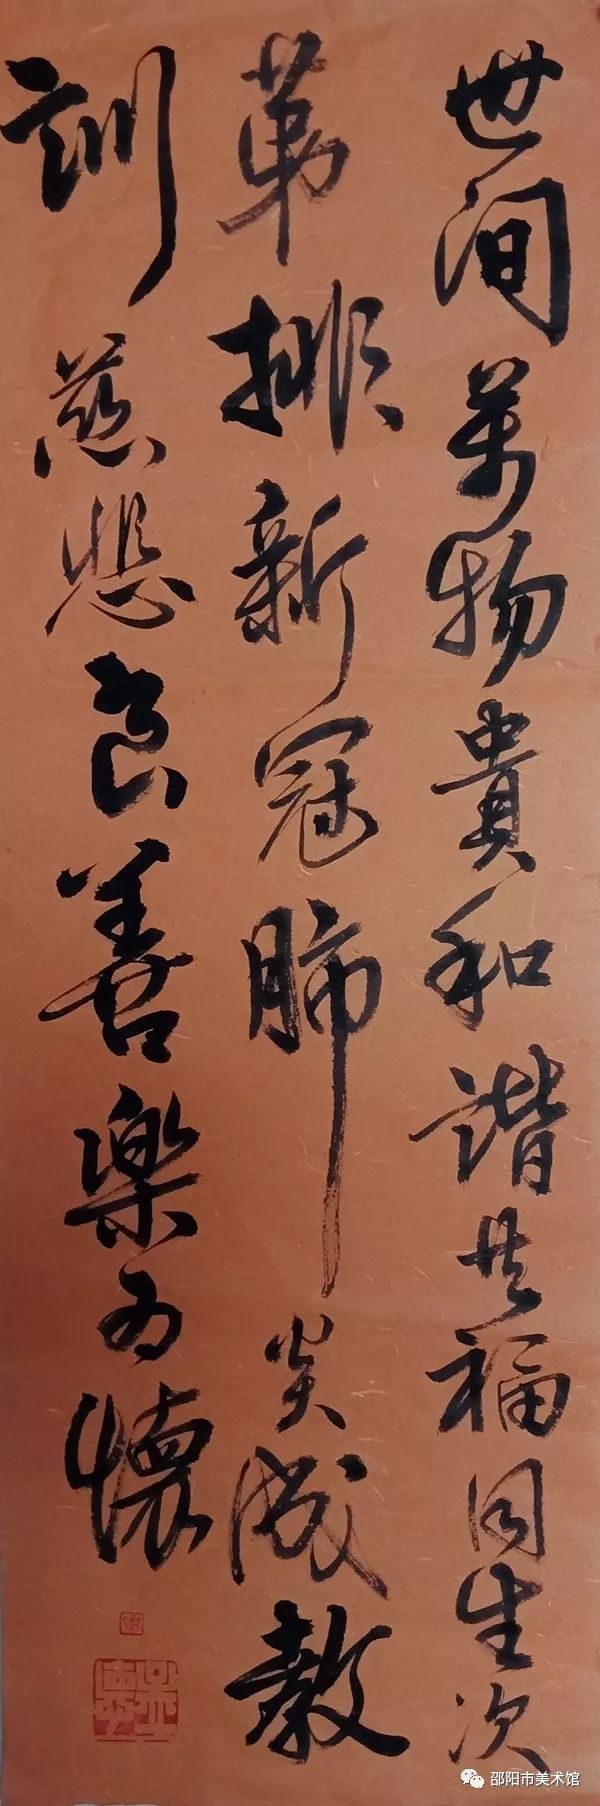 世间万物貴和谐共福同生次
第排新冠肺炎成教
训慈悲良善樂为懷
邵阳市美术馆